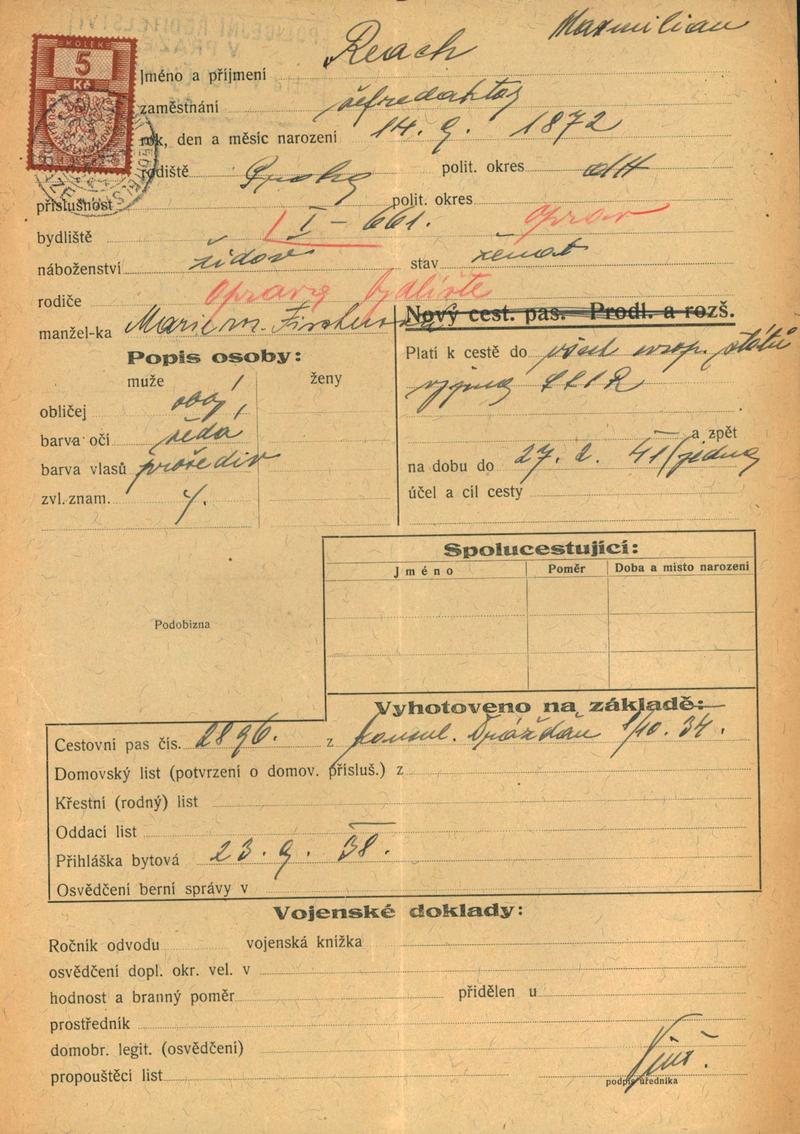 Reach Maxmilian
KOLEK
5
Kč
Jméno a příjmení
zaměstnání šéfredaktor
rok, den a měsíc narození 14. 9. 1872
rodiště polit. okres dtt
příslušnost polit. okres
bydliště I - 661. oprav
náboženství židov stav ženat
rodiče oprava bydliště
manžel-ka Marie
Nový cest. pas. Prodl. a rozš.
Popis osoby:
muže ženy
obličej
barva očí šedá
barva vlasů prošediv
zvl. znam. /.
Platí k cestě do všech evrop. států
vyjma SSSR
a zpět
na dobu do 27. 2. 41
účel a cíl cesty
Podobizna
Spolucestující:
Jméno Poměr Doba a místo narození
Vyhotoveno na základě:
Cestovní pas čís. 2896. z konsul. Drážďan 1/10. 34.
Domovský list (potvrzení o domov. přísluš.) z
Křestní (rodný) list
Oddací list
Přihláška bytová 23. 9. 38.
Osvědčení berní správy v
Vojenské doklady:
Ročník odvodu vojenská knížka
osvědčení dopl. okr. vel. v
hodnost a branný poměr přidělen u
prostředník
domobr. legit. (osvědčení)
propouštěcí list
podpis úředníka